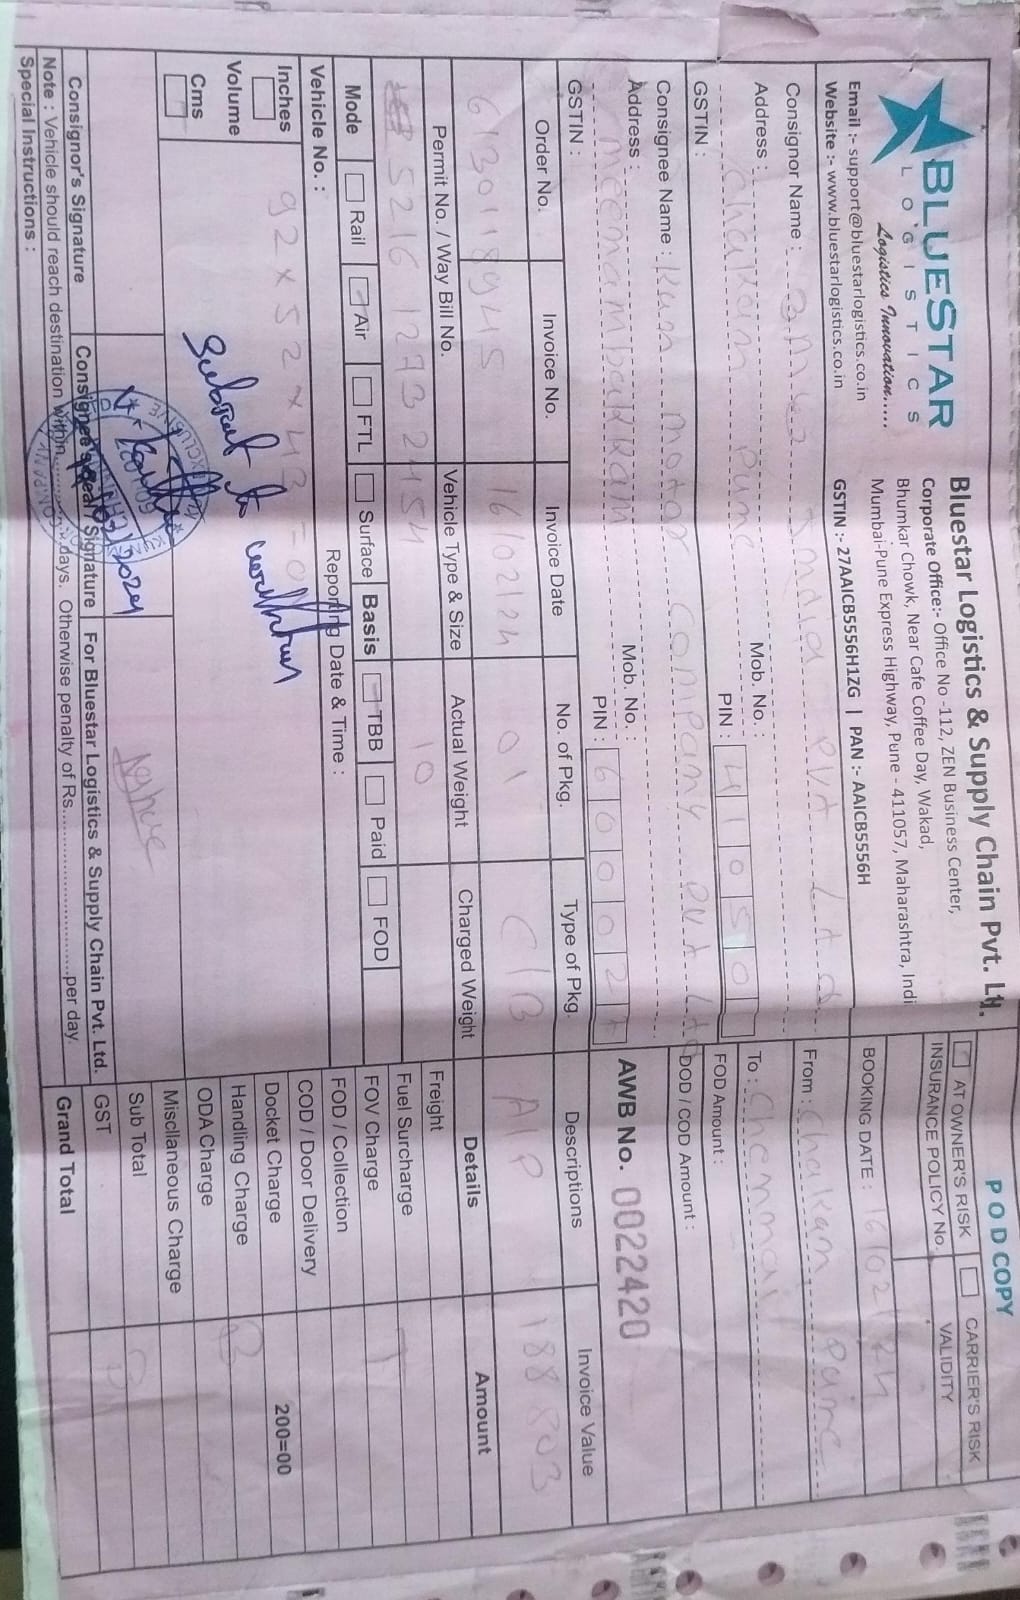 BLUESTAR
LOGISTICS
Logistics Innovation.....
Email :- support@bluestarlogistics.co.in
Website :- www.bluestarlogistics.co.in
Bluestar Logistics & Supply Chain Pvt. Ltd.
Corporate Office:- Office No -112, ZEN Business Center,
Bhumkar Chowk, Near Cafe Coffee Day, Wakad,
Mumbai-Pune Express Highway, Pune - 411057, Maharashtra, Indi
GSTIN :- 27AAICB5556H1ZG | PAN :- AAICB5556H
POD COPY
AT OWNER'S RISK CARRIER'S RISK
INSURANCE POLICY No. VALIDITY
BOOKING DATE : 16/02/24
From : Chakan Pune
To : Chennai
FOD Amount :
DOD / COD Amount :
AWB No. 0022420
Consignor Name : India Pvt Ltd
Address : Mob. No. :
Chakan Pune PIN : 41050
GSTIN :
Consignee Name : Kun motor Company Pvt Ltd
Address : Mob. No. :
meenambakkam PIN : 600027
GSTIN :
Order No. Invoice No. Invoice Date No. of Pkg. Type of Pkg. Descriptions Invoice Value
6130118945 16/02/24 01 C/B A/P 188803
Permit No. / Way Bill No. Vehicle Type & Size Actual Weight Charged Weight
5216 1273 2454 10
Mode Rail Air FTL Surface Basis TBB Paid FOD
Vehicle No. : Reporting Date & Time :
Inches
Volume
Cms
92 x 52 x 43 =
Subject to
Consignor's Signature
Consignee's Seal / Signature
For Bluestar Logistics & Supply Chain Pvt. Ltd.
Note : Vehicle should reach destination within............days. Otherwise penalty of Rs............................per day.
Special Instructions :
Details Amount
Freight
Fuel Surcharge
FOV Charge
FOD / Collection
COD / Door Delivery
Docket Charge 200=00
Handling Charge
ODA Charge
Miscllaneous Charge
Sub Total
GST
Grand Total